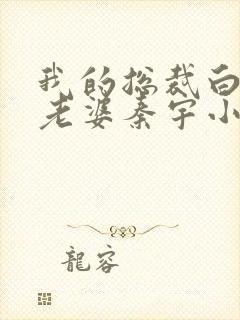 我的总裁白
老婆秦宇小
龍容